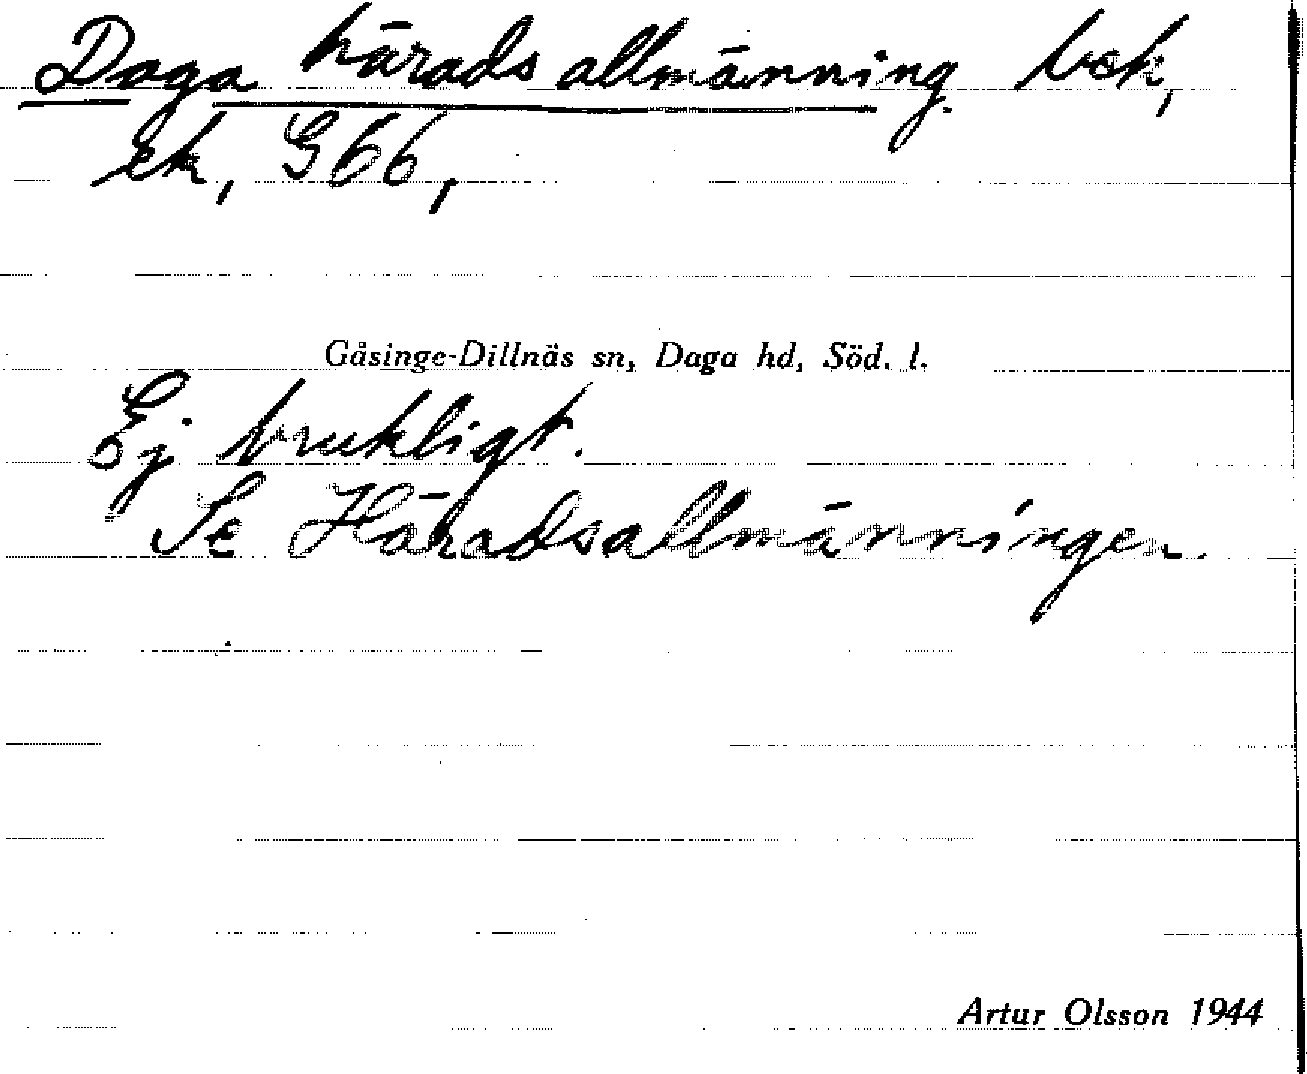 Daga häradsallmänning bek,
ek, G66,
Gåsinge-Dillnäs sn, Daga hd, Söd. l.
Ej brukligt.
Se Häradsallmänningen.
Artur Olsson 1944